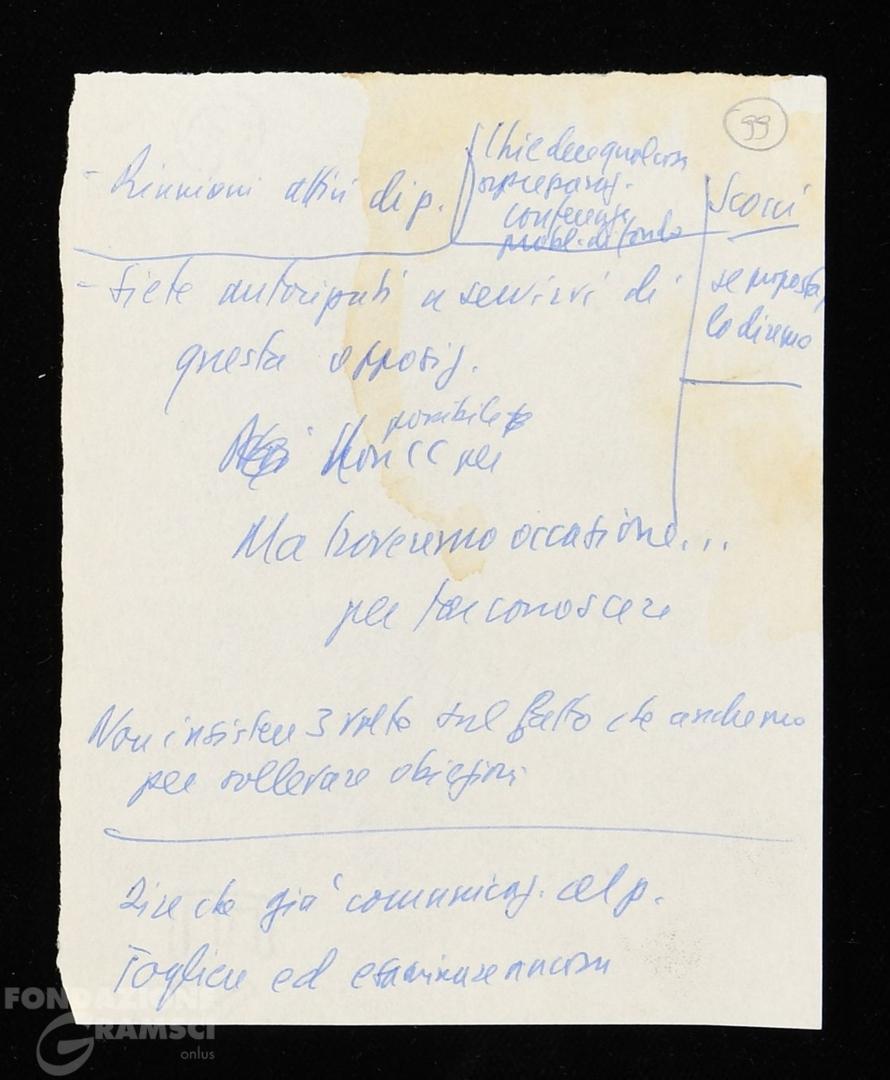 99
- Riunioni attivi di p.
Chiedere qualcosa
preparaz.
conferenza
probl. di fondo
Scocci
se proposta,
lo diremo
- Siete autorizzati a servirvi di
questa opposiz.
possibile
Non CC per
Ma troveremo occasione...
per far conoscere
Non insistere 3 volte sul fatto che andremo
per sollevare obiezioni
Dire che già comunicaz. al p.
Togliere ed esaminare ancora
FONDAZIONE
GRAMSCI
onlus